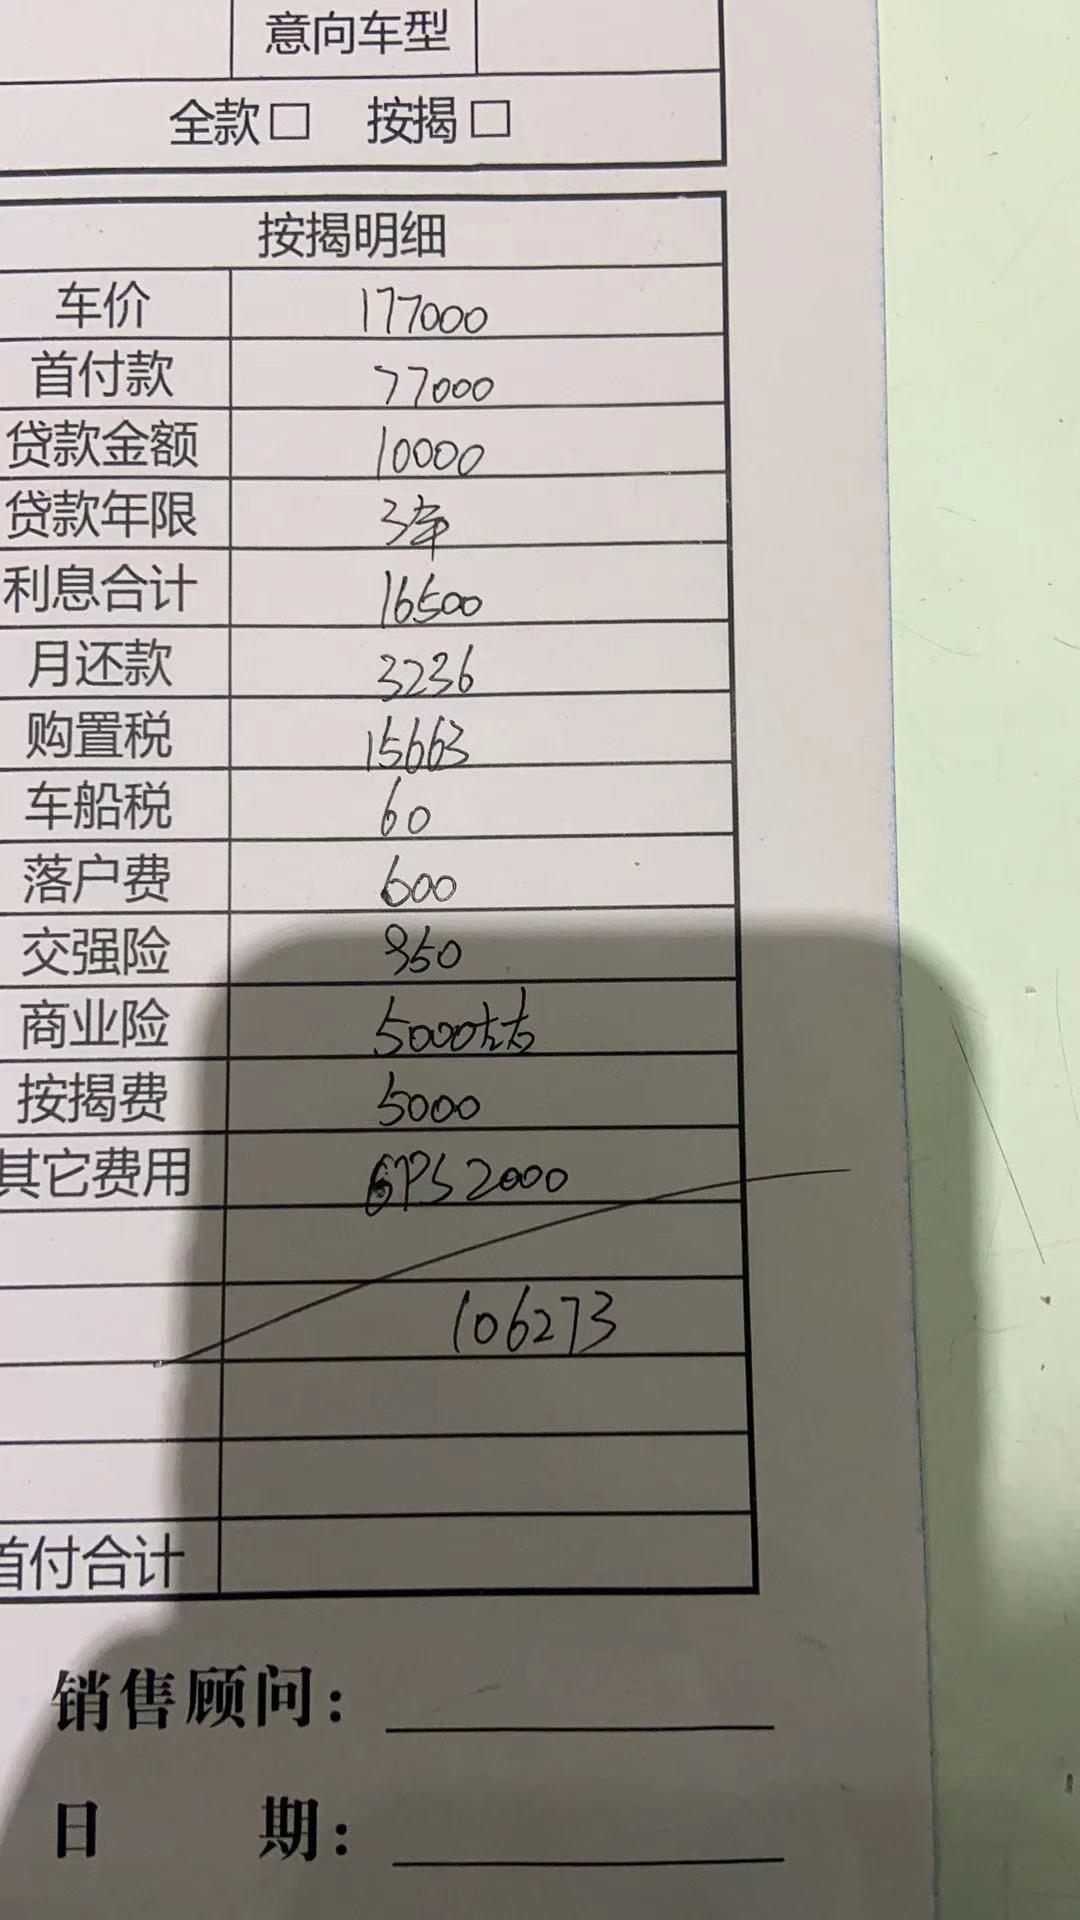 意向车型
全款□ 按揭□
按揭明细
车价 177000
首付款 77000
贷款金额 10000
贷款年限 3年
利息合计 16500
月还款 3236
购置税 15663
车船税 60
落户费 600
交强险 950
商业险 5000左右
按揭费 5000
其它费用 GPS 2000
106273
首付合计
销售顾问：
日 期：